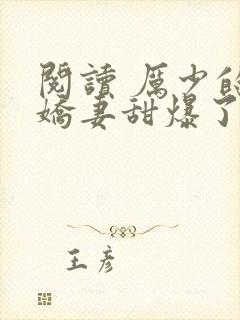 閱讀 厲少的
嬌妻甜爆了
王彥